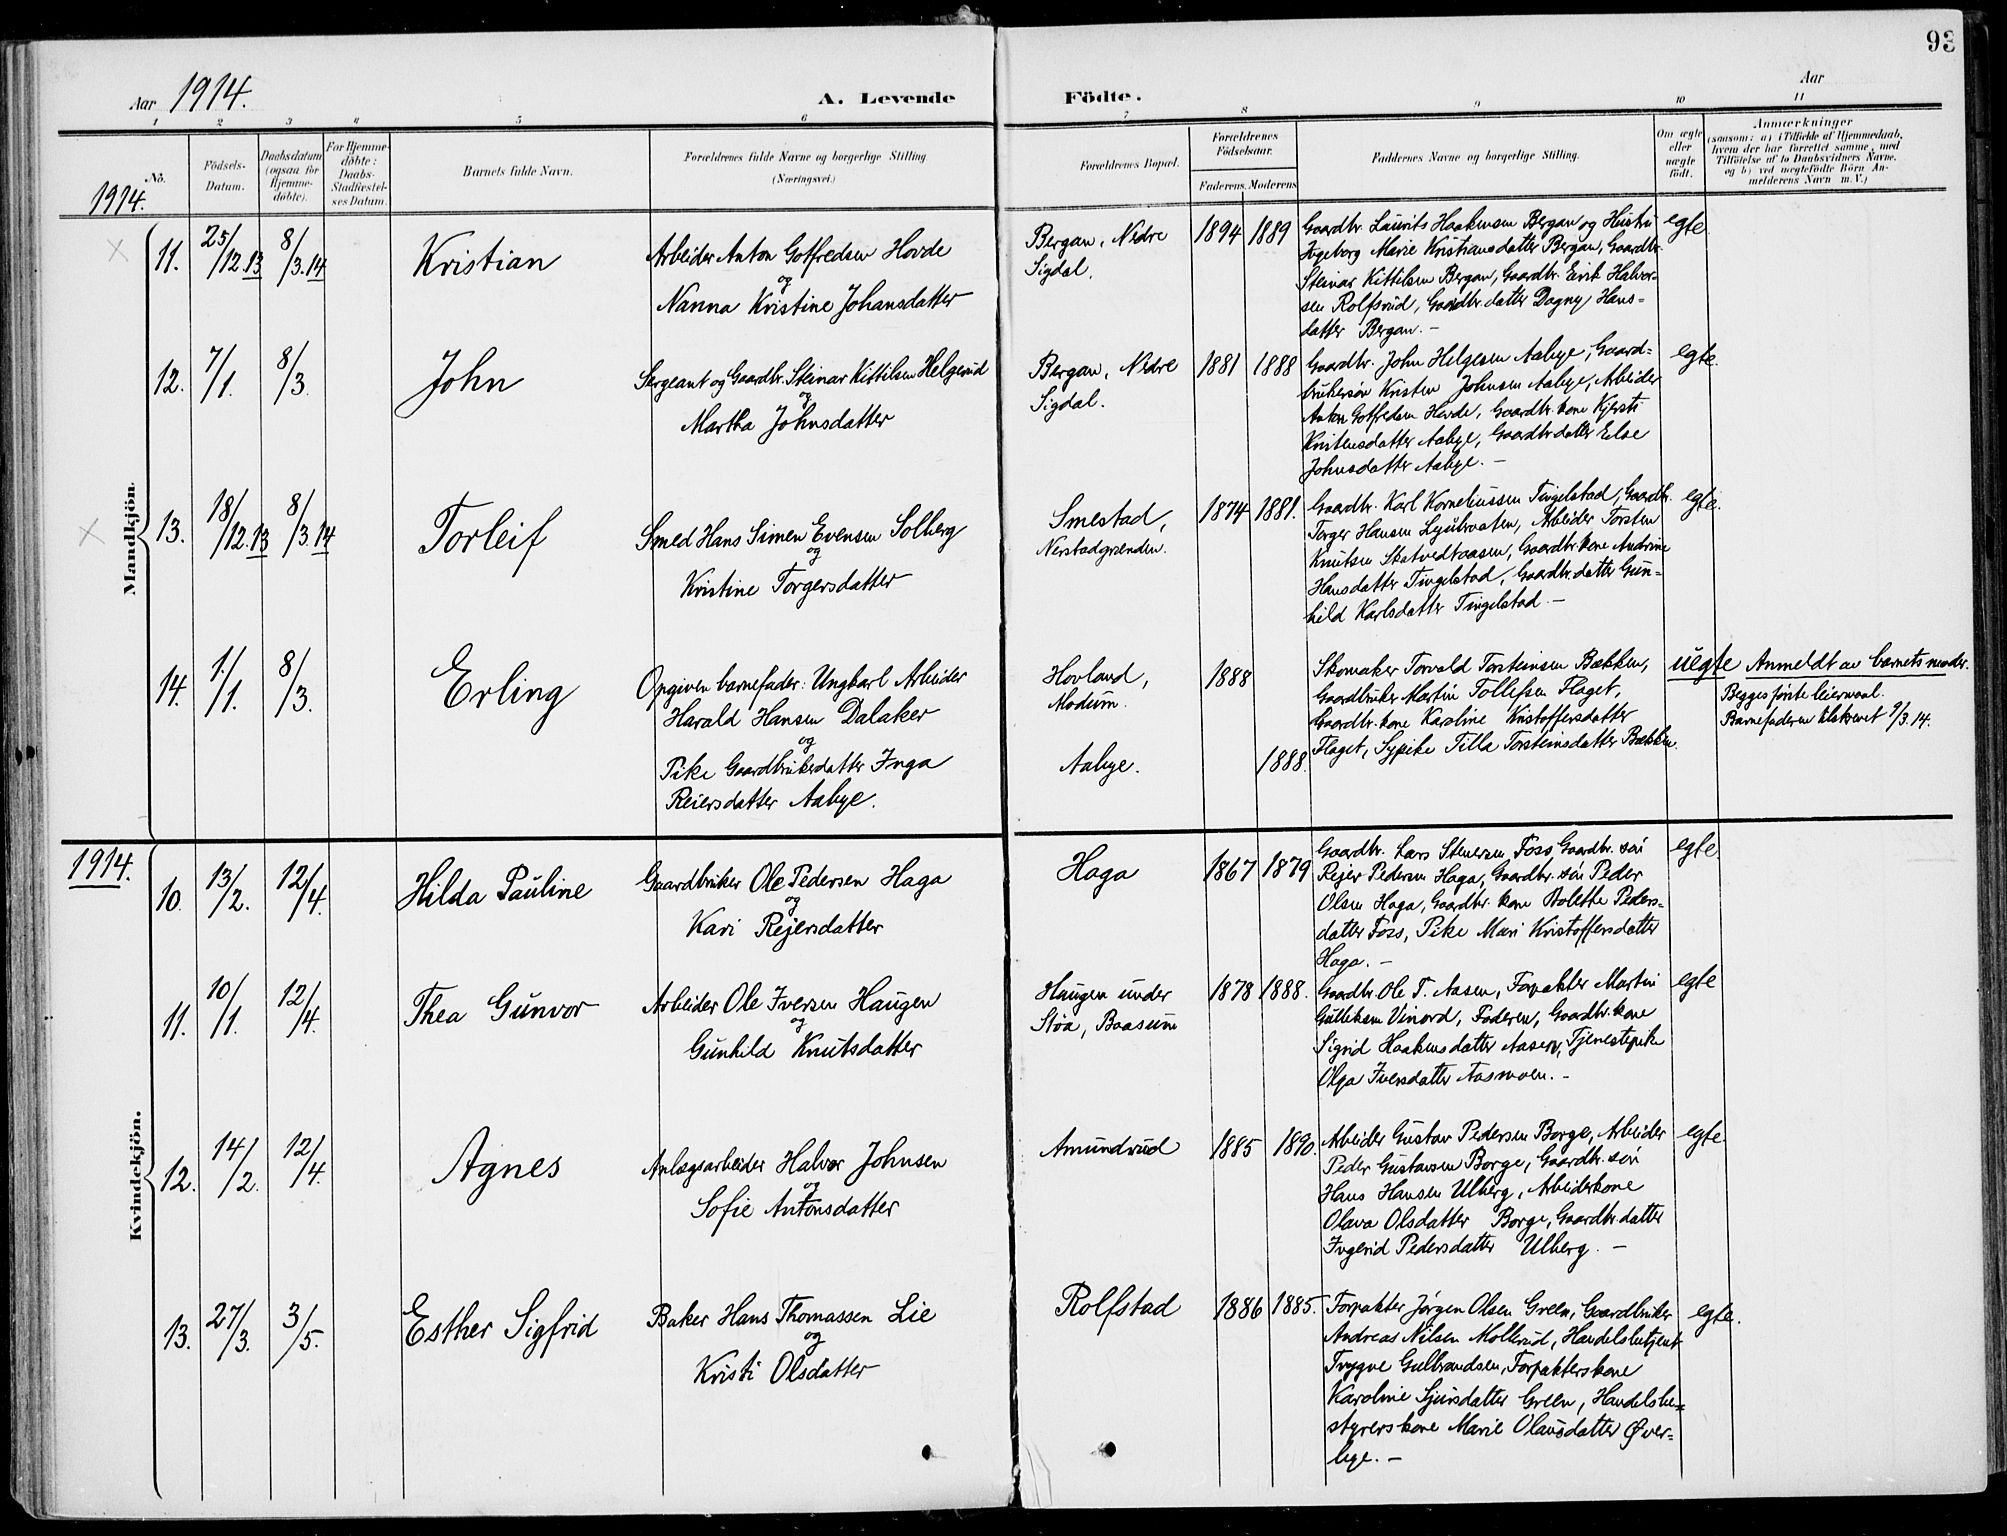 93
Aar 1914. A. Levende Födte. Aar
1 2 3 4 5 6 7 8 9 10 11
No. Födsels-Datum. Daabsdatum (ogsaa for Hjemme-döbte). For Hjemme-döbte: Daabs-Stadfæstel-ses Datum. Barnets fulde Navn. Forældrenes fulde Navne og borgerlige Stilling (Næringsvei.) Forældrenes Bopæl. Forældrenes Födselsaar. Faderens. Moderens Faddernes Navne og borgerlige Stilling. Om ægte eller uægte födt. Anmærkninger (saasom: a) i Tilfælde af Hjemmedaab, hvem der har forrettet samme, med Tilföielse af to Daabsvidners Navne. og b) ved uægtefödte Börn An-melderens Navn m. V.)
1914.
Mandkjön.
11. 25/12.13 8/3.14 Kristian
Arbeider Anton Gotfredsen Hovde
og
Nanna Kristine Johansdatter
Bergan, Nedre
Sigdal.
1894 1889
Gaardbr. Laurits Haakensen Bergan og Hustru
Ingeborg Marie Kristiansdatter Bergan, Gaardbr.
Steinar Kittilsen Bergan, Gaardbr. Eirik Halvor-
sen Rolfsrud, Gaardbr.datter Dagny Hans-
datter Bergan. -
egte
12. 7/1. 8/3. John
Sergeant og Gaardbr. Steinar Kittilsen Helgerud
og
Martha Johnsdatter
Bergan, Nedre
Sigdal.
1881 1888
Gaardbr. John Helgesen Aabye, Gaard-
brukersøn Kristen Johnsen Aabye, Arbeider
Anton Gotfredsen Hovde, Gaardbr.kone Kjersti
Kristensdatter Aabye, Gaardbr.datter Else
Johnsdatter Aabye. -
egte.
13. 18/12.13 8/3.14 Torleif
Smed Hans Simen Evensen Solberg
og
Kristine Torgersdatter
Smestad,
Nerstadgrænden.
1874 1881.
Gaardbr. Karl Korneliussen Tingelstad, Gaardbr.
Torger Hansen Lysbraaten, Arbeider Torsten
Knutsen Skatvedtaasen, Gaardbr.kone Andrine
Hansdatter Tingelstad, Gaardbr.datter Gun-
hild Karlsdatter Tingelstad. -
egte.
14. 1./1. 8/3. Erling
Opgiven barnefader: Ungkarl Arbeider
Harald Hansen Dalaker
og
Pike Gaardbrukerdatter Inga
Reiersdatter Aabye.
Hovland,
Modum.
Aabye.
1888
1888.
Skomaker Torvald Torsteinsen Bækken,
Gaardbruker Martin Tollefsen Flaget,
Gaardbr.kone Karoline Kristoffersdatter
Flaget, Sypike Tilla Torsteinsdatter Bækken.
uegte
Anmeldt av barnets moder.
Begges første leiermaal.
Barnefaderen tilskrevet 9/3.14.
1914.
Kvindekjön.
10. 13/2. 12/4. Hilda Pauline
Gaardbruker Ole Pedersen Haga
og
Kari Rejersdatter
Haga
1867 1879
Gaardbr. Lars Stenersen Foss Gaardbr. søn
Rejer Pedersen Haga, Gaardbr. søn Peder
Olsen Haga, Gaardbr. kone Bolette Peders-
datter Foss, Pike Mari Kristoffersdatter
Haga. -
egte.
11. 10/1. 12/4. Thea Gunvor
Arbeider Ole Iversen Haugen
og
Gunhild Knutsdatter
Haugen under
Støa, Baasum
1878 1888.
Gaardbr. Ole T. Aasen, Forpakter Martin
Gulleksen Vinord, Faderen, Gaardbr.kone
Sigrid Haakensdatter Aasen, Tjenestepike
Olga Iversdatter Aasmoen. -
egte
12. 14/2. 12/4. Agnes
Anlægsarbeider Halvor Johnsen
og
Sofie Antonsdatter
Amundrud
1885 1890.
Arbeider Gustav Pedersen Borge, Arbeider
Peder Gustavsen Borge, Gaardbr. søn
Hans Hansen Ulberg, Arbeiderkone
Olava Olsdatter Borge, Gaardbr.datter
Ingerid Pedersdatter Ulberg. -
egte.
13. 27/3. 3/5. Esther Sigfrid
Baker Hans Thomassen Lie
og
Kristi Olsdatter
Rolfstad
1886 1885.
Forpakter Jørgen Olsen Green, Gaardbruker
Andreas Nilsen Mollerud, Handelsbetjent
Trygve Gulbrandsen, Forpakterskone
Karoline Sjursdatter Green, Handelsbe-
styrerskone Marie Olausdatter Øver-
bye. -
egte.